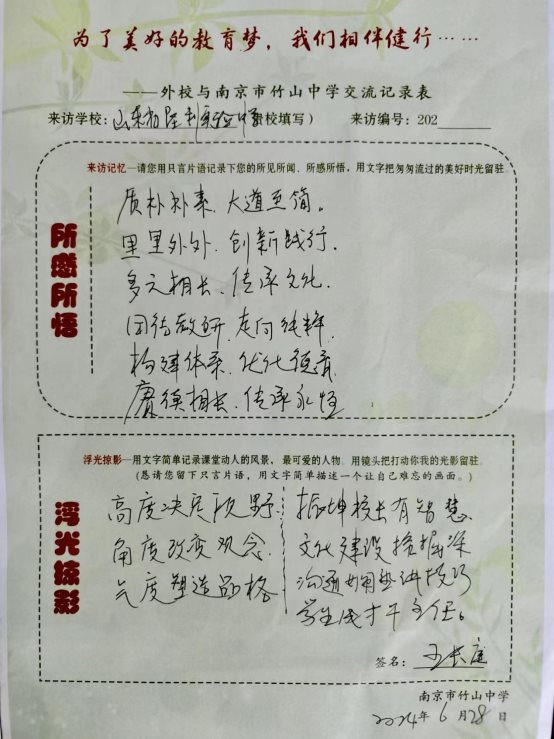 为了美好的教育梦，我们相伴健行……
——外校与南京市竹山中学交流记录表
来访学校：山东 实验中学校填写） 来访编号：202
来访记忆—请您用只言片语记录下您的所见所闻、所感所悟，用文字把匆匆流过的美好时光留驻。
所感所悟
质朴朴素、大道至简。
里里外外、创新践行、
多元相长、传承文化、
团待教研、走向纯粹、
构建体系、优化德育、
赓续相长、传承永恒
浮光掠影—用文字简单记录课堂动人的风景，最可爱的人物。用镜头把打动你我的光影留驻。
（恳请您留下只言片语，用文字简单描述一个让自己难忘的画面。）
浮光掠影
高度决定视野、
角度改变观念、
气度塑造品格
振坤校长有智慧、
文化建设挖掘深
沟通 讲技巧
学生成才 主任。
签名：王长庭
南京市竹山中学
2024年6月28日